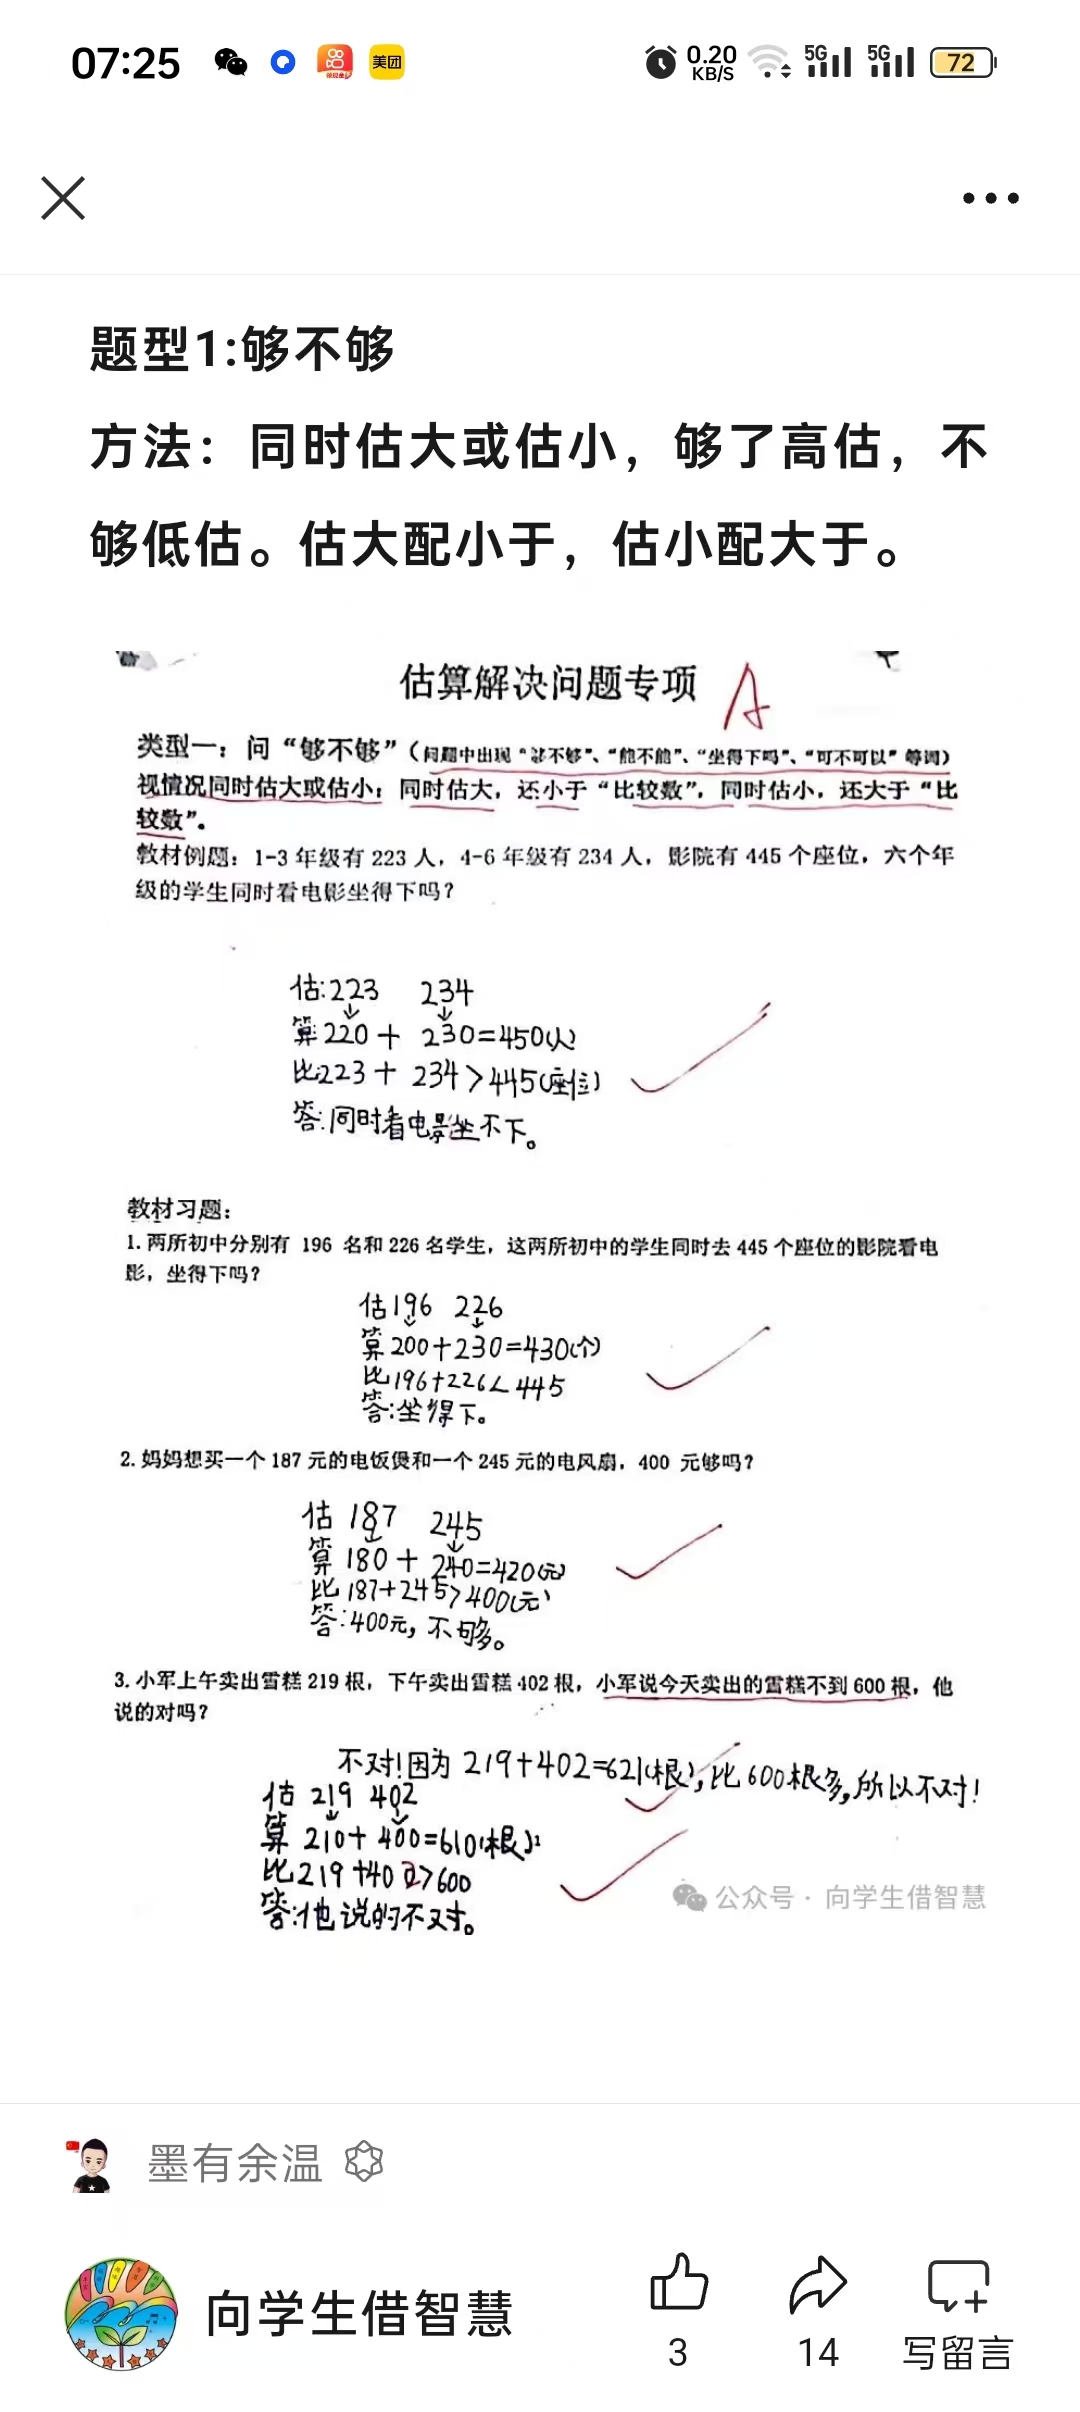 07:25
美团
0.20
KB/S
5G
5G
72
题型1:够不够
方法：同时估大或估小，够了高估，不
够低估。估大配小于，估小配大于。
估算解决问题专项 A
类型一：问“够不够”（问题中出现“够不够”、“能不能”、“坐得下吗”、“可不可以”等词）
视情况同时估大或估小：同时估大，还小于“比较数”，同时估小，还大于“比
较数”。
教材例题：1-3 年级有 223 人，4-6 年级有 234 人，影院有 445 个座位，六个年
级的学生同时看电影坐得下吗？
估:223 234
算220+ 230=450(人)
比223+ 234>445(座位)
答:同时看电影坐不下。
教材习题：
1. 两所初中分别有 196 名和 226 名学生，这两所初中的学生同时去 445 个座位的影院看电
影，坐得下吗？
估196 226
算200+230=430(个)
比196+226<445
答:坐得下。
2. 妈妈想买一个 187 元的电饭煲和一个 245 元的电风扇，400 元够吗？
估 187 245
算 180+ 240=420(元)
比 187+245>400(元)
答:400元，不够。
3. 小军上午卖出雪糕 219 根，下午卖出雪糕 402 根，小军说今天卖出的雪糕不到 600 根，他
说的对吗？
不对!因为 219+402=621(根),比600根多,所以不对!
估 219 402
算 210+ 400=610(根)
比219+402>600
答:他说的不对。
公众号 · 向学生借智慧
墨有余温
向学生借智慧
3
14
写留言